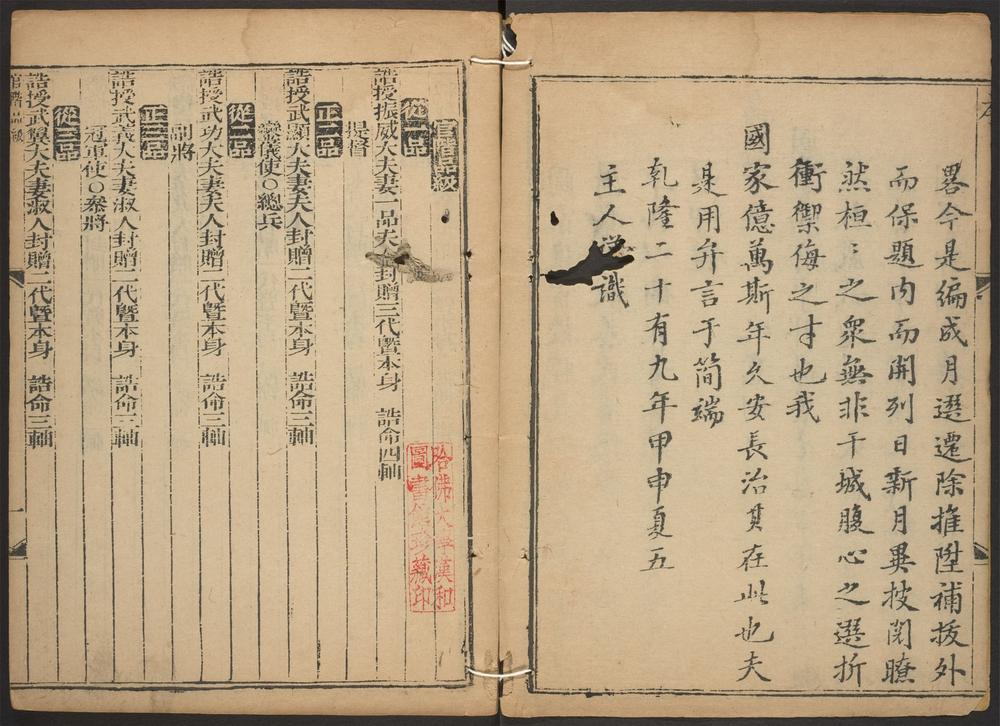 畧今是編成月選遷除推陞補拔外
而保題內而開列日新月異披閱瞭
然桓桓之衆無非干城腹心之選折
衝禦侮之才也我
國家億萬斯年久安長治其在此也夫
是用弁言于簡端
乾隆二十有九年甲申夏五
主人 識
官階品級
從一品
誥授振威大夫妻一品夫 封贈三代曁本身 誥命四軸
提督
正二品
誥授武顯大夫妻夫人封贈二代曁本身 誥命三軸
鑾儀使○總兵
從二品
誥授武功大夫妻夫人封贈二代曁本身 誥命三軸
副將
正三品
誥授武義大夫妻淑人封贈二代曁本身 誥命三軸
冠軍使○叅將
從三品
誥授武翼大夫妻淑人封贈二代曁本身 誥命三軸
官階品級
哈佛大學漢和
圖書館珍藏印